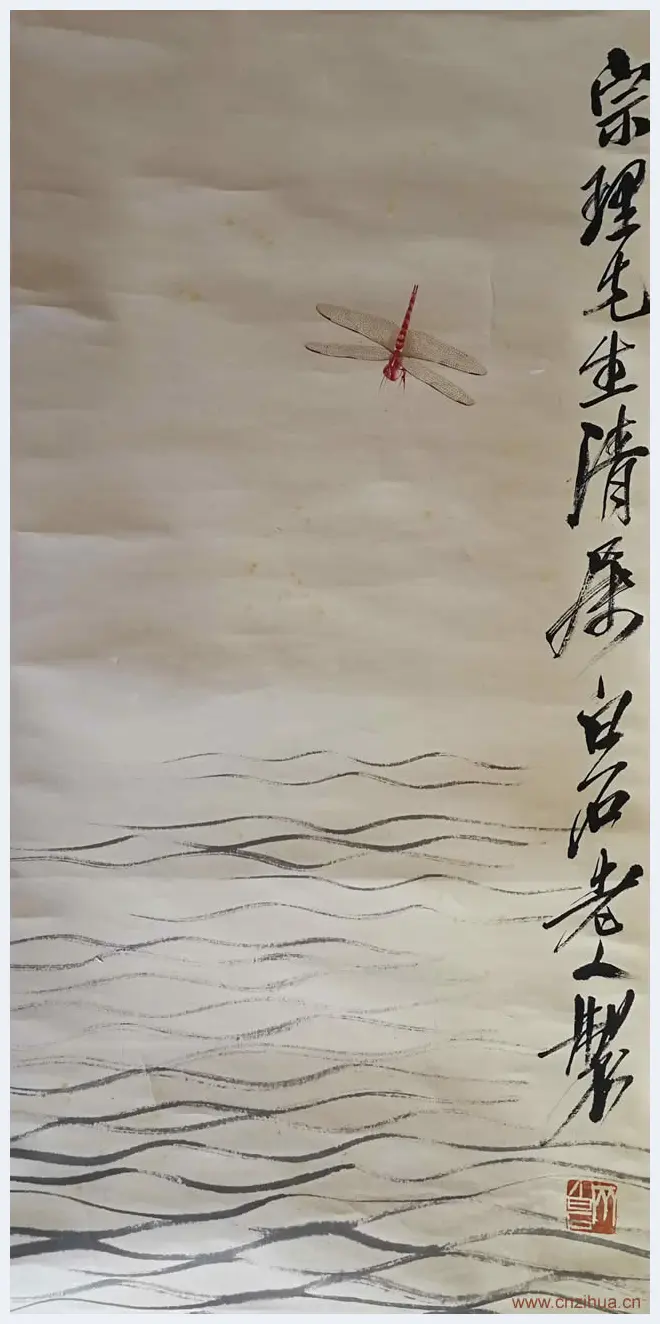 宗理先生清属白石老人製
www.cnzihua.cn